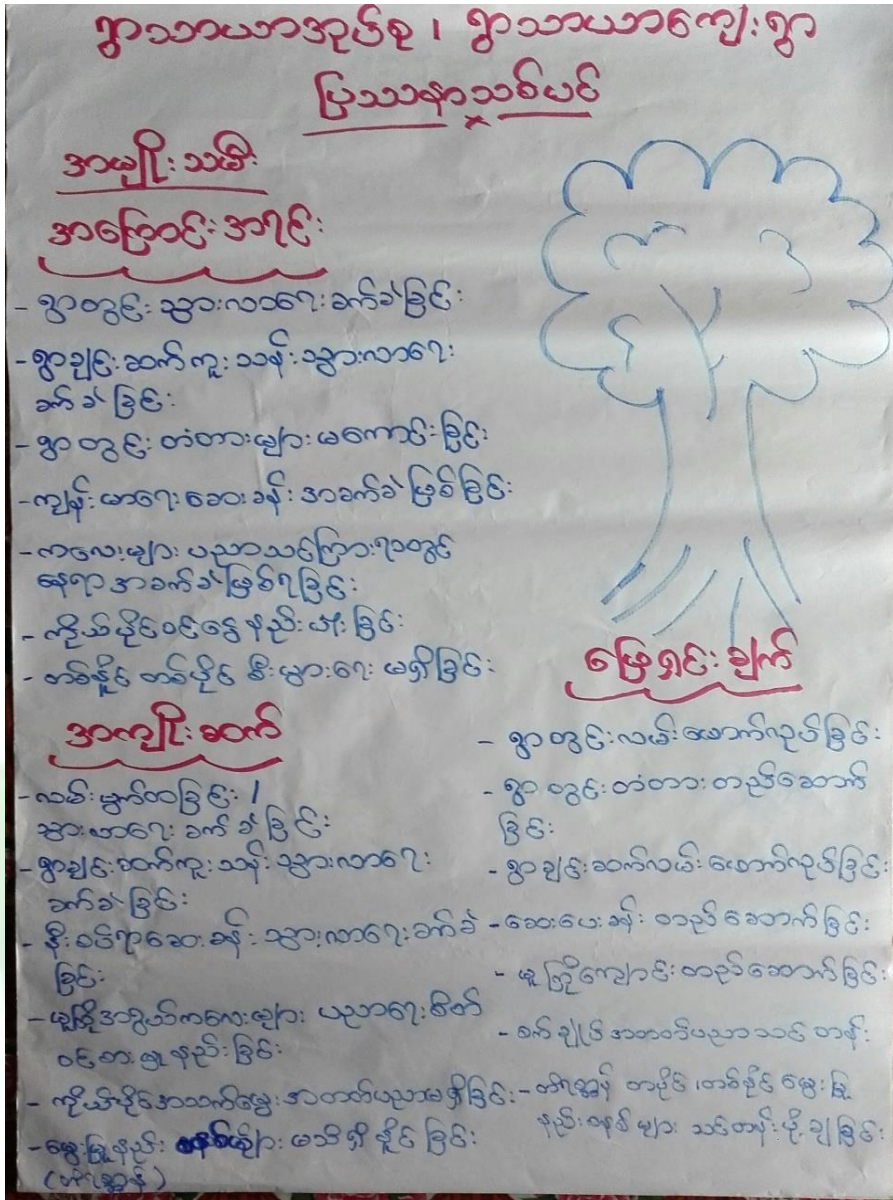 ရွာသာယာအုပ်စု ၊ ရွာသာယာကျေးရွာ
ပြဿနာသစ်ပင်
အမျိုးသမီး
အကြောင်းအရင်း
- ရွာတွင်းသွားလာရေးခက်ခဲခြင်း
- ရွာချင်းဆက်ကူးသန်းသွားလာရေး
ခက်ခဲခြင်း
- ရွာတွင်းတံတားများမကောင်းခြင်း
- ကျန်းမာရေးဆေးခန်းအခက်ခဲဖြစ်ခြင်း
- ကလေးများပညာသင်ကြားရာတွင်
နေရာအခက်ခဲဖြစ်ရခြင်း
- ကိုယ်ပိုင်ဝင်ငွေနည်းပါးခြင်း
- တစ်နိုင်တစ်ပိုင်စီးပွားရေးမရှိခြင်း
အကျိုးဆက်
- လမ်းပွက်ထခြင်း /
သွားလာရေးခက်ခဲခြင်း
- ရွာချင်းဆက်ကူးသန်းသွားလာရေး
ခက်ခဲခြင်း
- နီးစပ်ရာဆေးခန်းသွားလာရေးခက်ခဲ
ခြင်း
- မူကြိုအရွယ်ကလေးများပညာရေးစိတ်
ဝင်စားမှုနည်းခြင်း
- ကိုယ်ပိုင်အသက်မွေးအတတ်ပညာမရှိခြင်း
- မွေးမြူနည်းစနစ်များမသိရှိနိုင်ခြင်း
(တိရစ္ဆာန်)
ဖြေရှင်းချက်
- ရွာတွင်းလမ်းဖောက်လုပ်ခြင်း
- ရွာတွင်းတံတားတည်ဆောက်
ခြင်း
- ရွာချင်းဆက်လမ်းဖောက်လုပ်ခြင်း
- ဆေးပေးခန်းတည်ဆောက်ခြင်း
- မူကြိုကျောင်းတည်ဆောက်ခြင်း
- စက်ချုပ်အတတ်ပညာသင်တန်း
- တိရစ္ဆာန်တပိုင်တစ်နိုင်မွေးမြူ
နည်းစနစ်များသင်တန်းပို့ချခြင်း